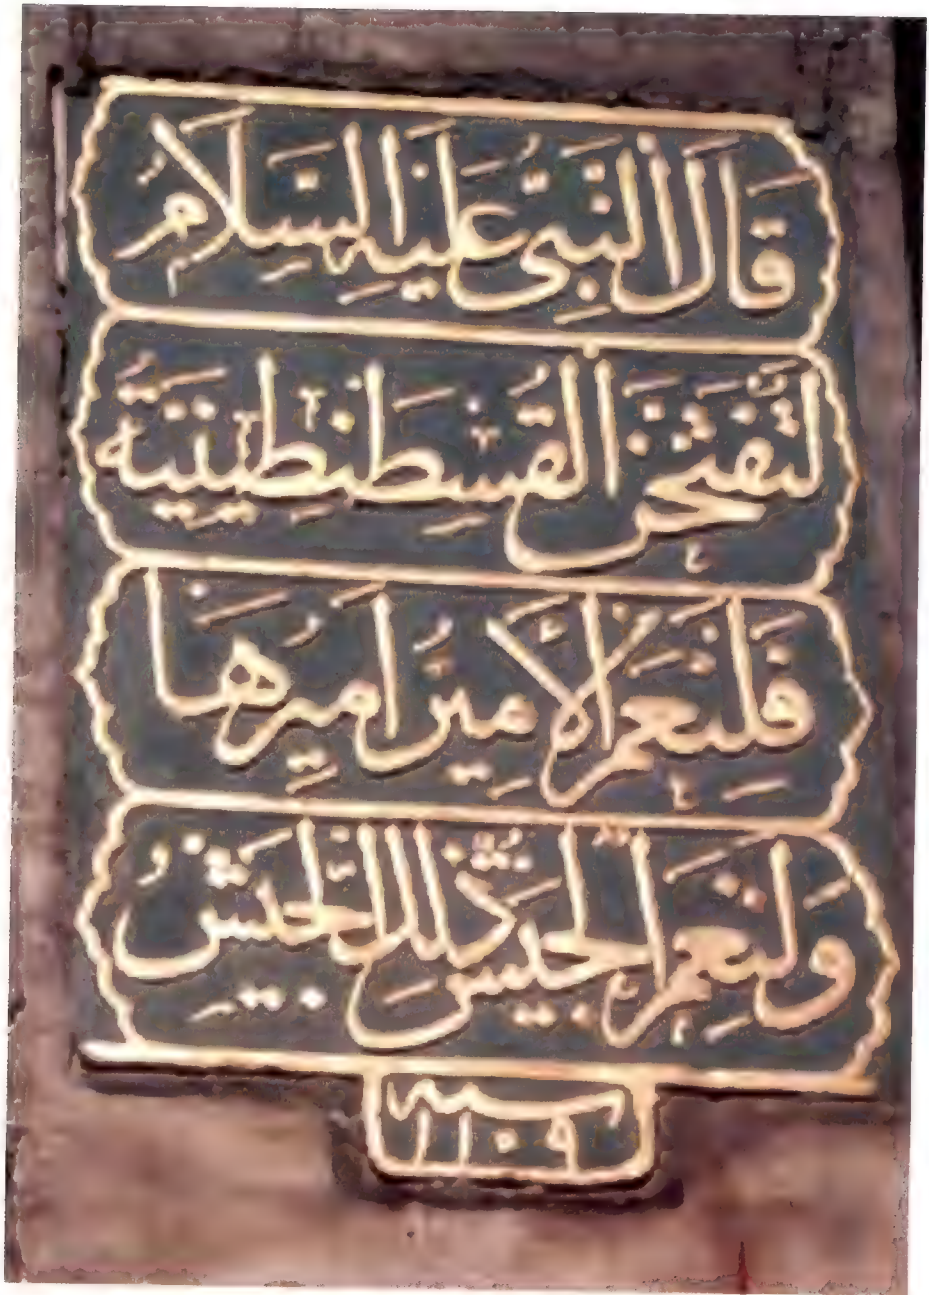 قَالَ النَّبِيُّ عَلَيْهِ السَّلَامُ
لَتُفْتَحَنَّ الْقُسْطَنْطِينِيَّةُ
فَلَنِعْمَ الْأَمِيرُ اَمِيرُهَا
وَلَنِعْمَ الْجَيْشُ ذٰلِكَ الْجَيْشُ
سنه
١١٠٩